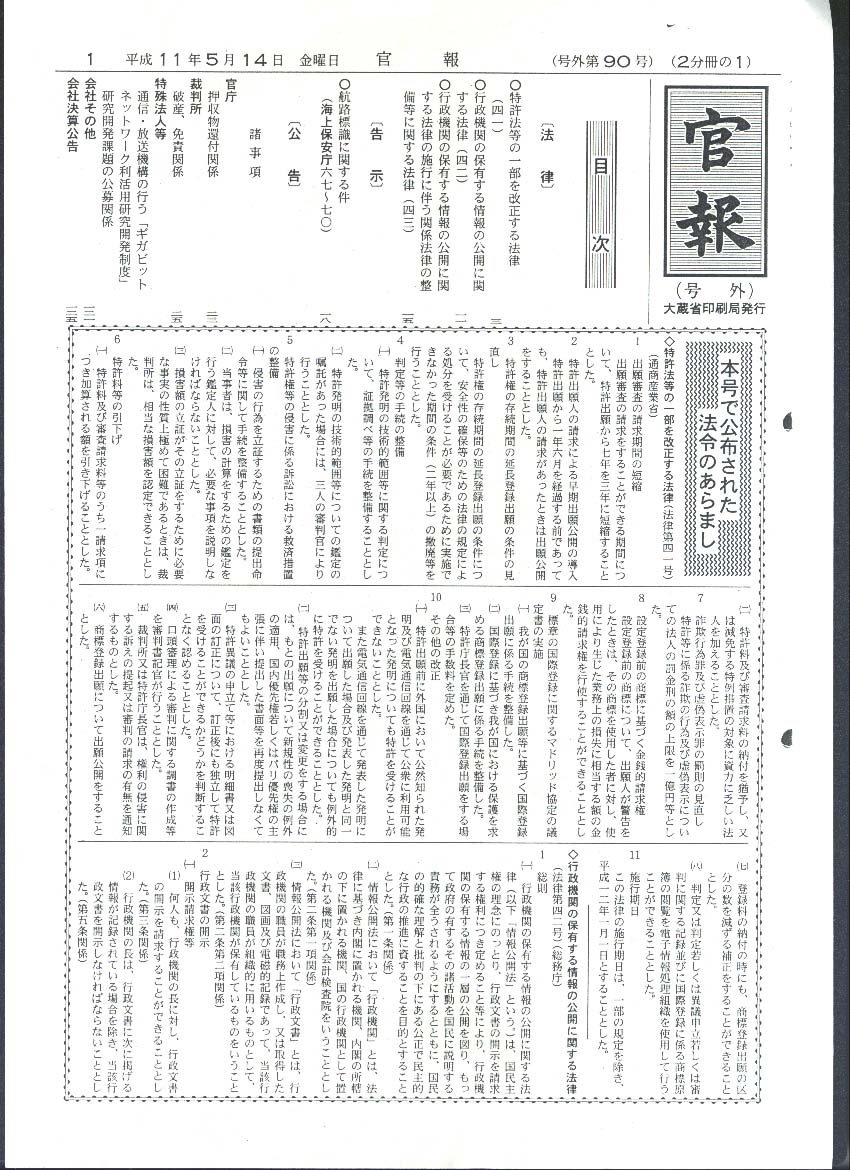 1 平成11年5月14日 金曜日 官報 (号外第90号) (2分冊の1)
官報
(号外)
大蔵省印刷局発行
目次
〔法律〕
○特許法等の一部を改正する法律
(四一) 三
○行政機関の保有する情報の公開に関
する法律(四二) 一一
○行政機関の保有する情報の公開に関
する法律の施行に伴う関係法律の整
備等に関する法律(四三) 一五
〔告示〕
○航路標識に関する件
(海上保安庁六七~七〇) 一八
〔公告〕
諸事項
官庁
押収物還付関係
裁判所
破産、免責関係
特殊法人等
通信・放送機構の行う「ギガビット
ネットワーク利活用研究開発制度」
研究開発課題の公募関係
会社その他
会社決算公告
本号で公布された
法令のあらまし
◇特許法等の一部を改正する法律(法律第四一号)
(通商産業省)
1 出願審査の請求期間の短縮
出願審査の請求をすることができる期間につ
いて、特許出願から七年を三年に短縮すること
とした。
2 特許出願人の請求による早期出願公開の導入
特許出願から一年六月を経過する前であって
も、特許出願人の請求があったときは出願公開
をすることとした。
3 特許権の存続期間の延長登録出願の条件の見
直し
特許権の存続期間の延長登録出願の条件につ
いて、安全性の確保等のための法律の規定によ
る処分を受けることが必要であるために実施で
きなかった期間の条件(二年以上)の撤廃等を
行うこととした。
4 判定等の手続の整備
㈠ 特許発明の技術的範囲等に関する判定につ
いて、証拠調べ等の手続を整備することとし
た。
㈡ 特許発明の技術的範囲等についての鑑定の
嘱託があった場合には、三人の審判官により
行うこととした。
5 特許権等の侵害に係る訴訟における救済措置
の整備
㈠ 侵害の行為を立証するための書類の提出命
令等に関して手続を整備することとした。
㈡ 当事者は、損害の計算をするための鑑定を
行う鑑定人に対して、必要な事項を説明しな
ければならないこととした。
㈢ 損害額の立証がその立証をするために必要
な事実の性質上極めて困難であるときは、裁
判所は、相当な損害額を認定できることとし
た。
6 特許料等の引下げ
㈠ 特許料及び審査請求料等のうち一請求項に
つき加算される額を引き下げることとした。
㈡ 特許料及び審査請求料の納付を猶予し、又
は減免する特例措置の対象に資力に乏しい法
人を加えることとした。
7 詐欺行為罪及び虚偽表示罪の罰則の見直し
特許等に係る詐欺の行為及び虚偽表示につい
ての法人の罰金刑の額の上限を一億円等とし
た。
8 設定登録前の商標に基づく金銭的請求権
設定登録前の商標について、出願人が警告を
したときは、その商標を使用した者に対し、使
用により生じた業務上の損失に相当する額の金
銭的請求権を行使することができることとし
た。
9 標章の国際登録に関するマドリッド協定の議
定書の実施
㈠ 我が国の商標登録出願等に基づく国際登録
出願に係る手続を整備した。
㈡ 国際登録に基づき我が国における保護を求
める商標登録出願に係る手続を整備した。
㈢ 特許庁長官を通じて国際登録出願をする場
合等の手数料を定めた。
10 その他の改正
㈠ 特許出願前に外国において公然知られた発
明及び電気通信回線を通じて公衆に利用可能
となった発明についても特許を受けることが
できないこととした。
また電気通信回線を通じて発表した発明に
ついて出願した場合及び発表した発明と同一
でない発明を出願した場合についても例外的
に特許を受けることができることとした。
㈡ 特許出願等の分割又は変更をする場合に
は、もとの出願について新規性の喪失の例外
の適用、国内優先権若しくはパリ優先権の主
張に伴い提出した書面等を再度提出しなくて
もよいこととした。
㈢ 特許異議の申立て等における明細書又は図
面の訂正について、訂正後にも独立して特許
を受けることができるかどうかを判断するこ
となく認めることとした。
㈣ 口頭審理による審判に関する調書の作成等
を審判書記官が行うこととした。
㈤ 裁判所又は特許庁長官は、権利の侵害に関
する訴えの提起又は審判の請求の有無を通知
するものとした。
㈥ 商標登録出願について出願公開をすること
とした。
㈦ 登録料の納付の時にも、商標登録出願の区
分の数を減ずる補正をすることができること
とした。
㈧ 判定又は判定若しくは異議申立若しくは審
判に関する記録並びに国際登録に係る商標原
簿の閲覧を電子情報処理組織を使用して行う
ことができることとした。
11 施行期日
この法律の施行期日は、一部の規定を除き、
平成一二年一月一日とすることとした。
◇行政機関の保有する情報の公開に関する法律
(法律第四二号)(総務庁)
1 総則
㈠ 行政機関の保有する情報の公開に関する法
律(以下「情報公開法」という。)は、国民主
権の理念にのっとり、行政文書の開示を請求
する権利につき定めること等により、行政機
関の保有する情報の一層の公開を図り、もっ
て政府の有するその諸活動を国民に説明する
責務が全うされるようにするとともに、国民
の的確な理解と批判の下にある公正で民主的
な行政の推進に資することを目的とすること
とした。(第一条関係)
㈡ 情報公開法において「行政機関」とは、法
律に基づき内閣に置かれる機関、内閣の所轄
の下に置かれる機関、国の行政機関として置
かれる機関及び会計検査院をいうこととし
た。(第二条第一項関係)
㈢ 情報公開法において「行政文書」とは、行
政機関の職員が職務上作成し、又は取得した
文書、図面及び電磁的記録であって、当該行
政機関の職員が組織的に用いるものとして、
当該行政機関が保有しているものをいうこと
とした。(第二条第二項関係)
2 行政文書の開示
㈠ 開示請求権等
(1) 何人も、行政機関の長に対し、行政文書
の開示を請求することができることとし
た。(第三条関係)
(2) 行政機関の長は、行政文書に次に掲げる
情報が記録されている場合を除き、当該行
政文書を開示しなければならないこととし
た。(第五条関係)